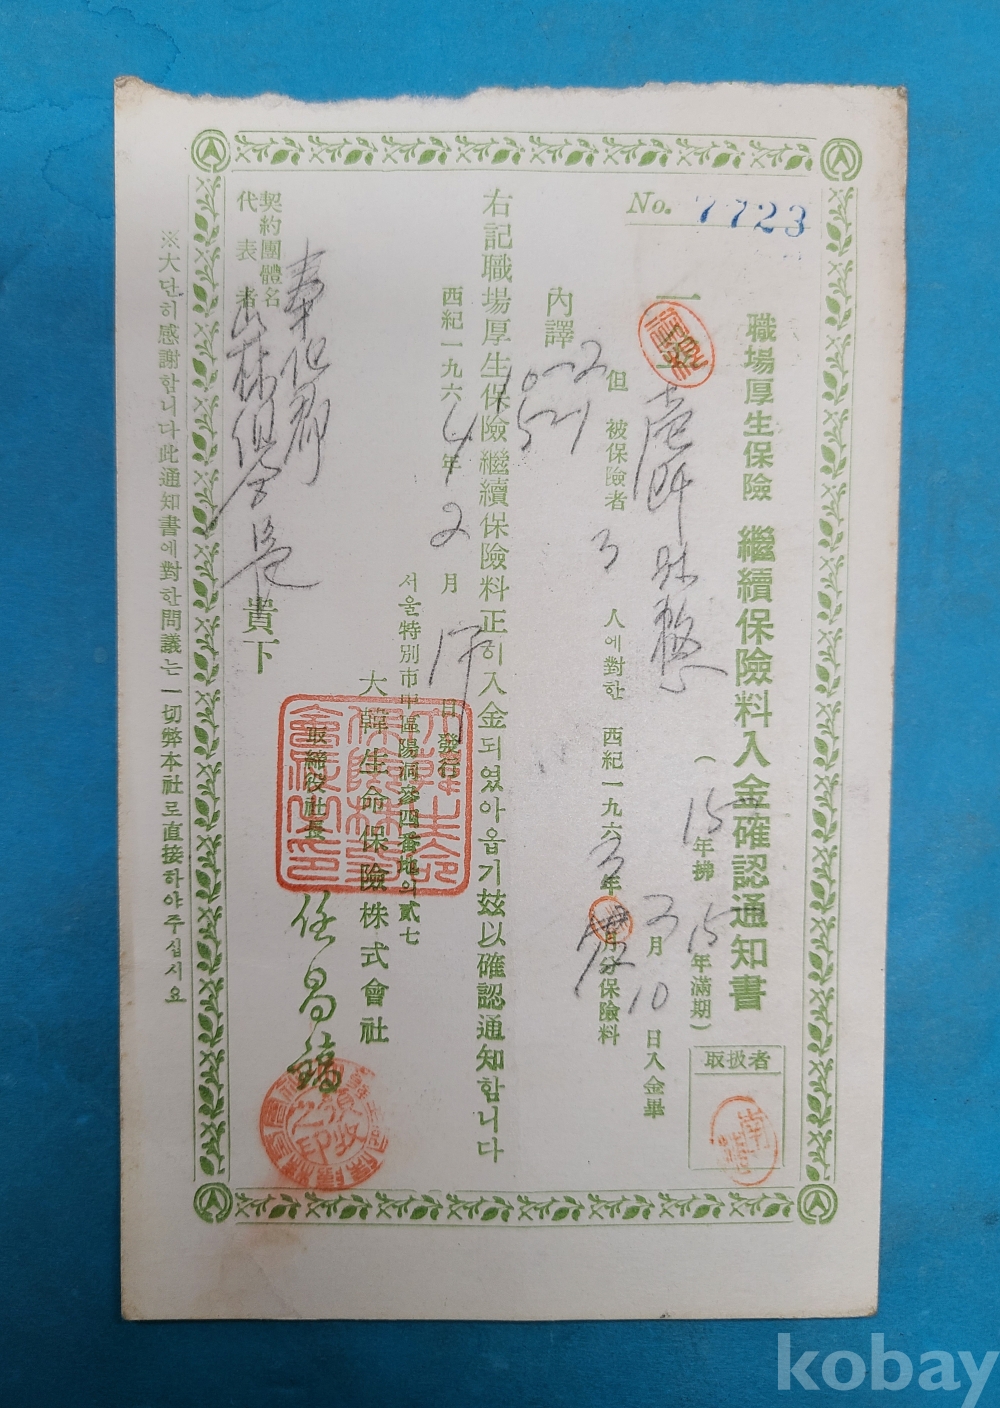 No. 7723
職場厚生保險 繼續保險料入金確認通知書
(15年拂 15年滿期)
取扱者
一金
但 被保險者 3 人에對한 西紀一九六 年 月分保險料
3月10日入金畢
內譯
右記職場厚生保險繼續保險料正히入金되였아옵기玆以確認通知함니다
西紀一九六4年2月 日發行
서울特別市中區陽洞參四番地의貳七
大韓生命保險株式會社
取締役社長 任昌鎬
契約團體名 奉化郡
代表者 山林組合長 貴下
※大단히感謝함니다此通知書에對한問議는一切弊本社로直接하야주십시요
領收之印
kobay